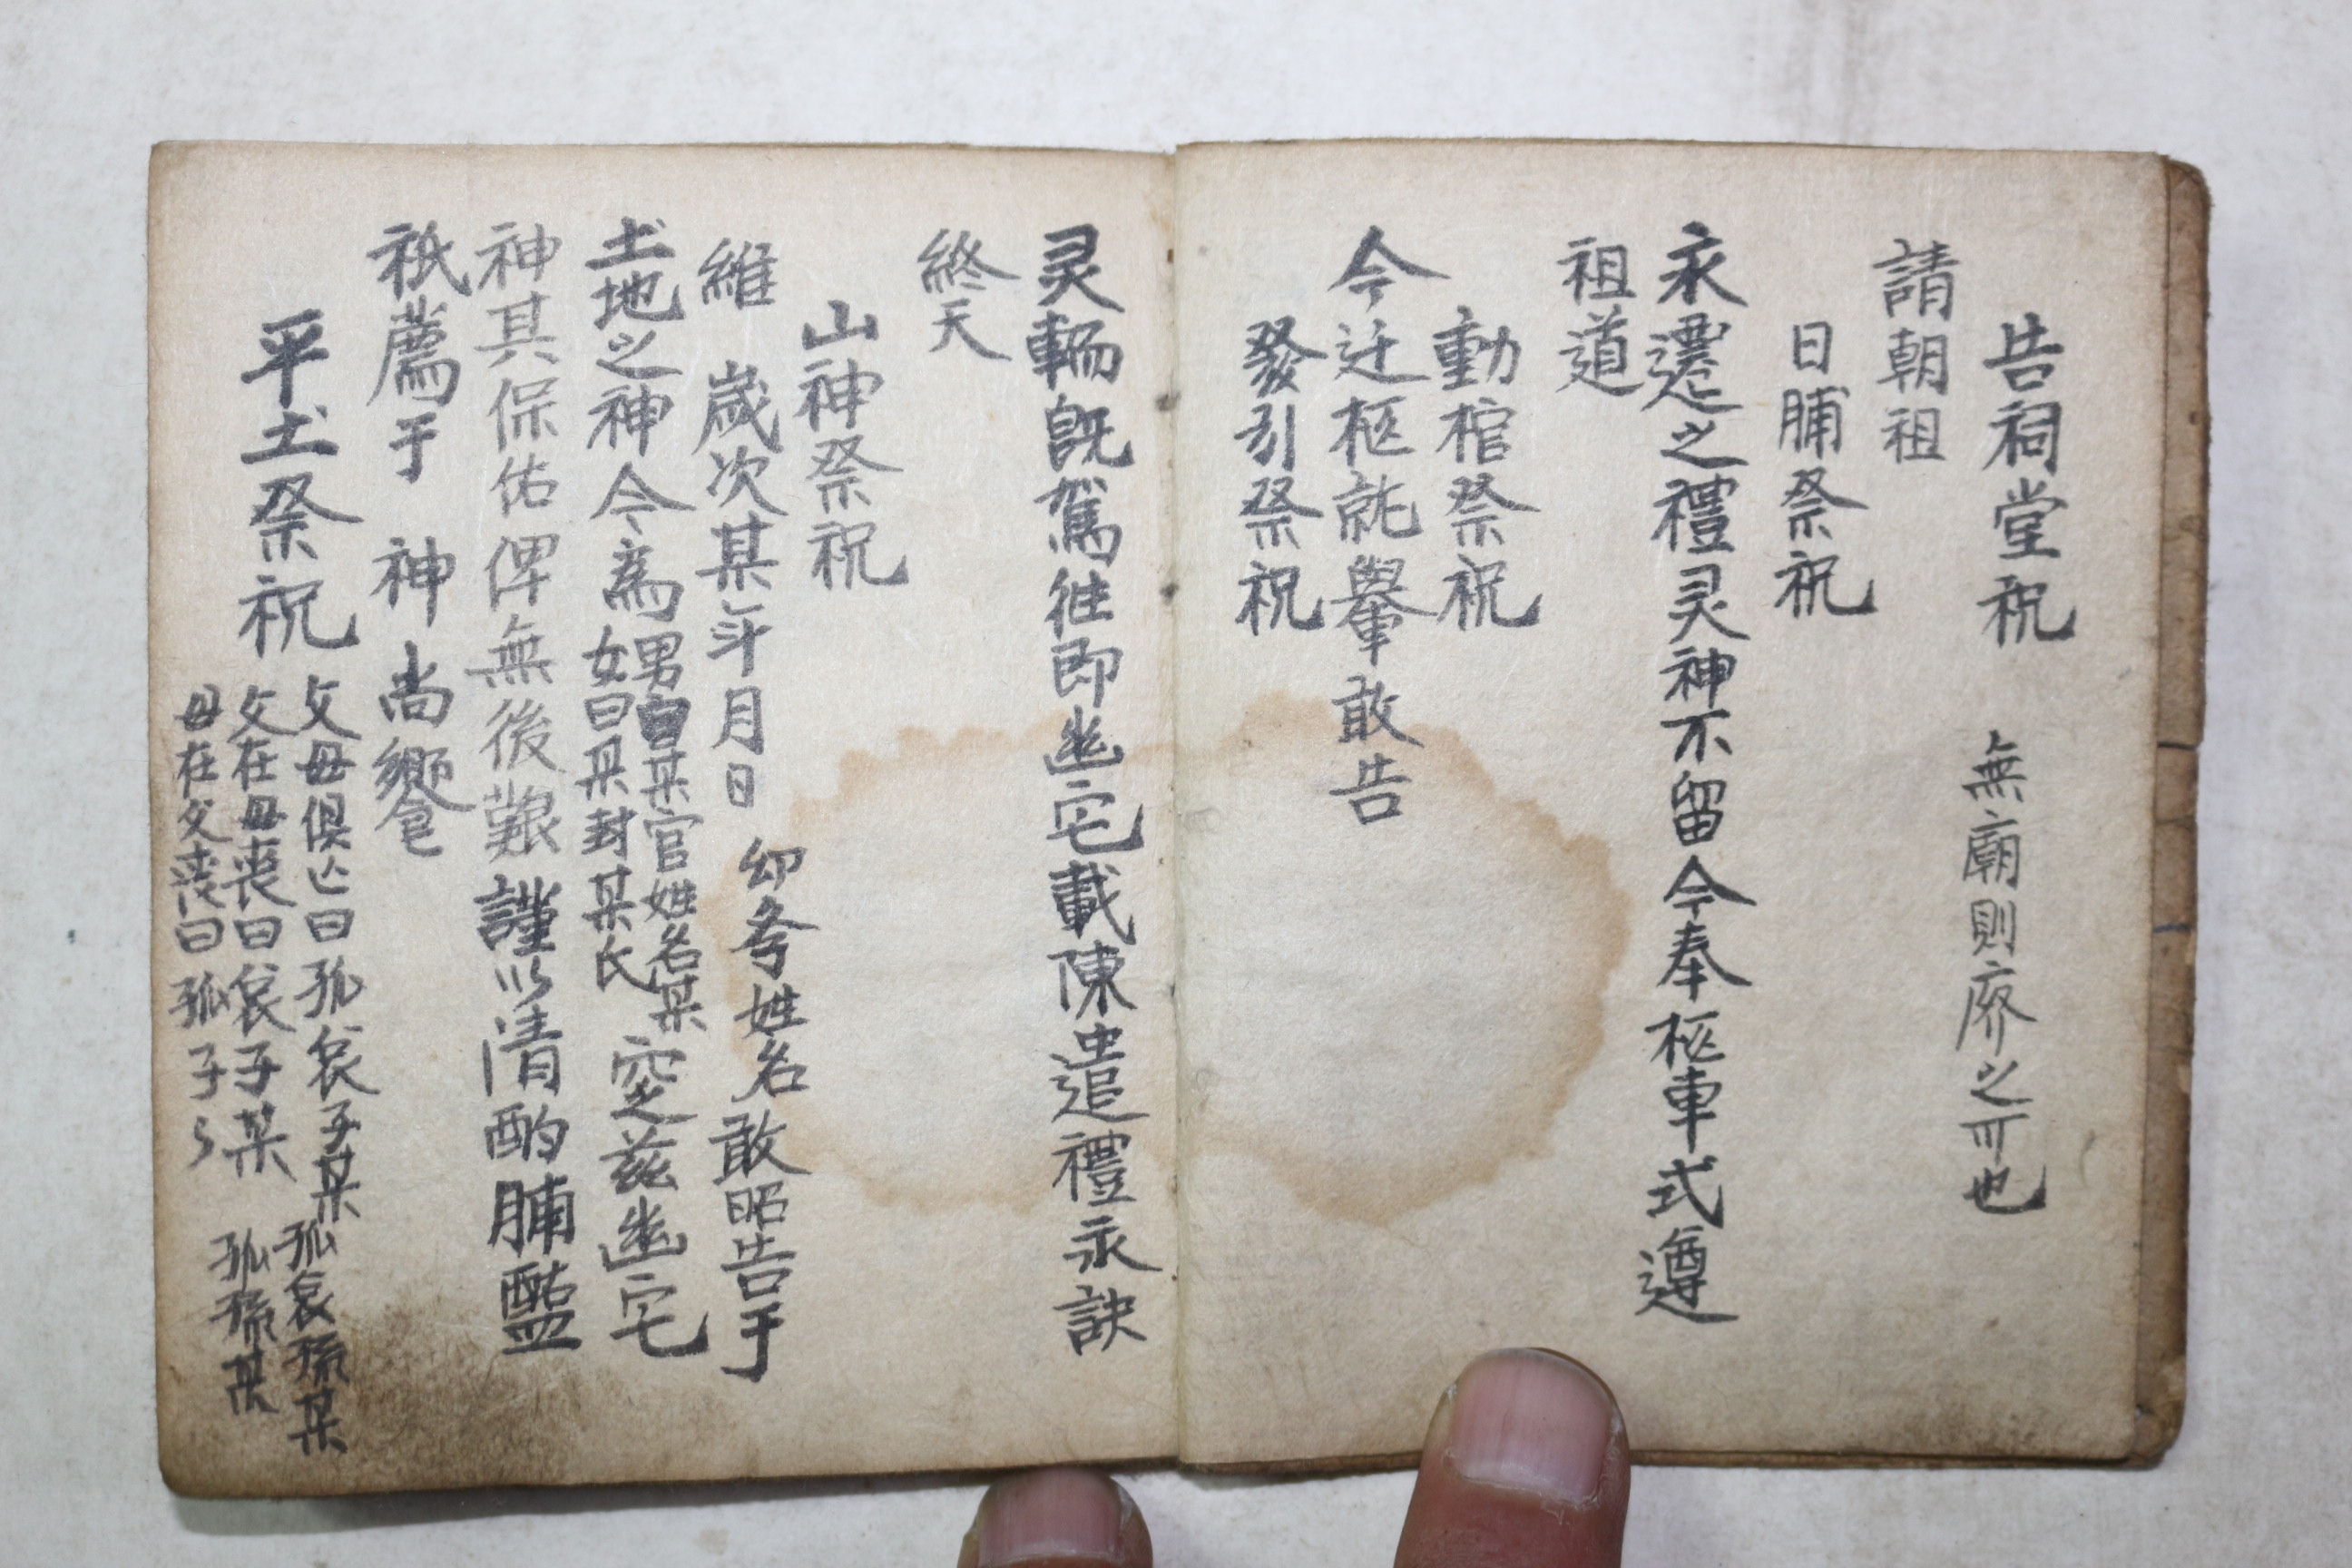 告祠堂祝 無廟則廢之可也
請朝祖
日脯祭祝
永遷之禮灵神不留今奉柩車式遵
祖道
動棺祭祝
今迁柩就轝敢告
發引祭祝
灵輀旣駕徃即幽宅載陳遣禮永訣
終天
山神祭祝
維 歲次某年月日 幼孝姓名敢昭告于
土地之神今爲
男自某官姓名某
女曰某封某氏
窆茲幽宅
神其保佑俾無後艱謹以清酌脯醢
祇薦于 神尚饗
平土祭祝
父母俱亡曰孤哀子某 孤哀孫某
父在母喪曰哀子某 孤孫某
母在父喪曰孤子